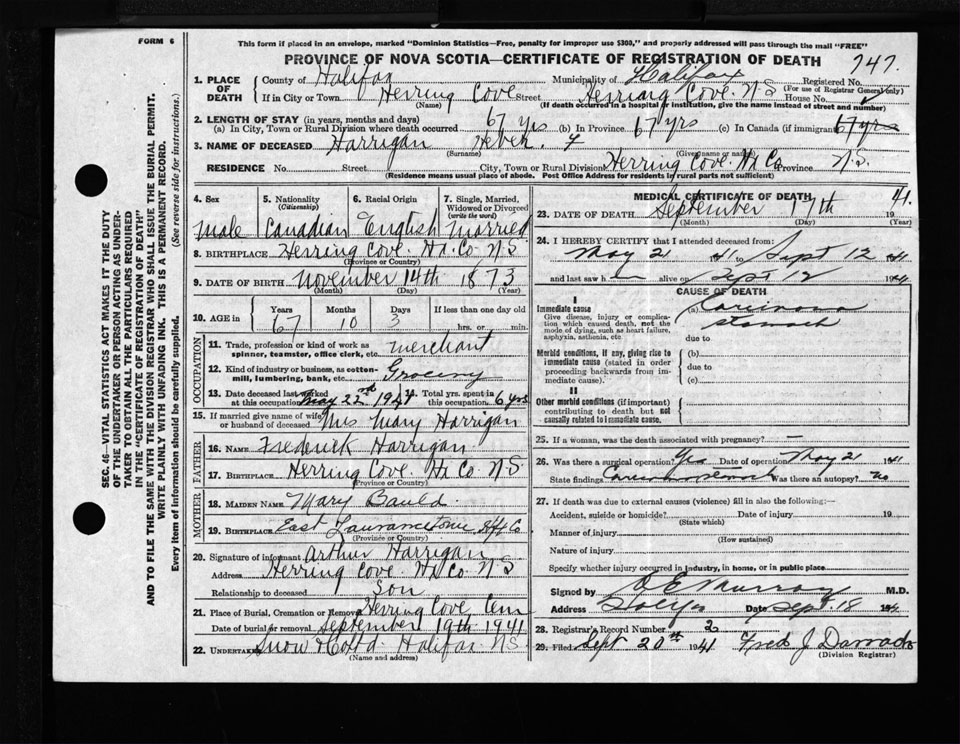 FORM 6
This form if placed in an envelope, marked "Dominion Statistics—Free, penalty for improper use $300," and properly addressed will pass through the mail "FREE"
PROVINCE OF NOVA SCOTIA—CERTIFICATE OF REGISTRATION OF DEATH
747.
SEC. 46—VITAL STATISTICS ACT MAKES IT THE DUTY
OF THE UNDERTAKER OR PERSON ACTING AS UNDER-
TAKER TO OBTAIN ALL THE PARTICULARS REQUIRED
IN THE "CERTIFICATE OF REGISTRATION OF DEATH"
AND TO FILE THE SAME WITH THE DIVISION REGISTRAR WHO SHALL ISSUE THE BURIAL PERMIT.
WRITE PLAINLY WITH UNFADING INK. THIS IS A PERMANENT RECORD.
Every item of information should be carefully supplied. (See reverse side for instructions.)
1. PLACE OF DEATH
County of Halifax Municipality of Halifax Registered No.
(For use of Registrar General only)
If in City or Town Herring Cove Street Herring Cove. N S House No.
(Name) (If death occurred in a hospital or institution, give the name instead of street and number)
2. LENGTH OF STAY (in years, months and days)
(a) In City, Town or Rural Division where death occurred 67 yrs (b) In Province 67 yrs (c) In Canada (if immigrant) 67 yrs
3. NAME OF DECEASED Harrigan Heber. F
(Surname) (Given name or names)
RESIDENCE No. Street City, Town or Rural Division Herring Cove. Hx Co Province N.S.
(Residence means usual place of abode. Post Office Address for residents in rural parts not sufficient)
4. Sex
Male
5. Nationality
(Citizenship)
Canadian
6. Racial Origin
English
7. Single, Married,
Widowed or Divorced
(write the word)
Married
8. BIRTHPLACE Herring Cove. Hx Co N S
(Province or Country)
9. DATE OF BIRTH November 14th 1873
(Month) (Day) (Year)
10. AGE in
Years Months Days If less than one day old
67 10 3 hrs. or min.
OCCUPATION
11. Trade, profession or kind of work as
spinner, teamster, office clerk, etc. Merchant
12. Kind of industry or business, as cotton-
mill, lumbering, bank, etc. Grocery
13. Date deceased last worked
at this occupation May 22nd 1941
14. Total yrs. spent in
this occupation 6 yrs
15. If married give name of wife
or husband of deceased Mrs Mary Harrigan
FATHER
16. Name Frederick Harrigan
17. Birthplace Herring Cove. Hx Co N S
(Province or Country)
MOTHER
18. Maiden Name Mary Bauld
19. Birthplace East Lawrencetown Hfx Co
(Province or Country)
20. Signature of informant Arthur Harrigan
Address Herring Cove. Hx Co N S
Relationship to deceased Son
21. Place of Burial, Cremation or Removal Herring Cove Cem
Date of burial or removal September 19th 1941
22. UNDERTAKER Snow & Co Ltd. Halifax. N S
(Name and address)
MEDICAL CERTIFICATE OF DEATH
23. DATE OF DEATH September 17th 1941.
(Month) (Day) (Year)
24. I HEREBY CERTIFY that I attended deceased from:
May 21 41 to Sept 12 41
and last saw h alive on Sept 12 194
CAUSE OF DEATH
I
Immediate cause
Give disease, injury or complica-
tion which caused death, not the
mode of dying, such as heart failure,
asphyxia, asthenia, etc.
(a) Carcinoma
stomach
due to
Morbid conditions, if any, giving rise to
immediate cause (stated in order
proceeding backwards from im-
mediate cause).
(b)
due to
(c)
II
Other morbid conditions (if important)
contributing to death but not
causally related to immediate cause.
25. If a woman, was the death associated with pregnancy? —
26. Was there a surgical operation? Yes Date of operation May 21 1941
State findings Carcinoma stomach Was there an autopsy? No
27. If death was due to external causes (violence) fill in also the following:—
Accident, suicide or homicide? Date of injury 19
(State which)
Manner of injury
(How sustained)
Nature of injury
Specify whether injury occurred in industry, in home, or in public place
Signed by E Murray M.D.
Address Halifax Date Sept. 18 194
28. Registrar's Record Number 2
29. Filed Sept 20th 1941 Fred J
(Division Registrar)